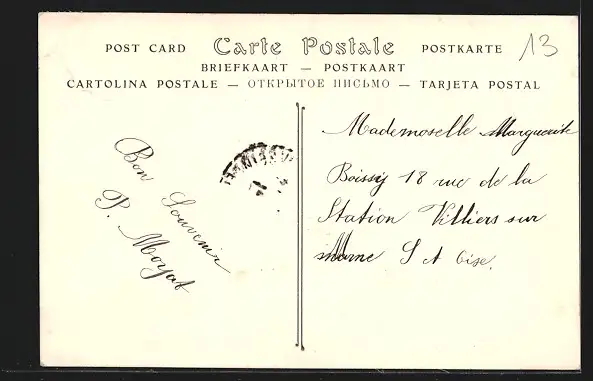 POST CARD Carte Postale POSTKARTE 13
BRIEFKAART — POSTKAART
CARTOLINA POSTALE — ОТКРЫТОЕ ПИСЬМО — TARJETA POSTAL
Bon Souvenir
P. Moyat
Mademoselle Marguerite
Boissy 18 rue de la
Station Villiers sur
Marne S et Oise.